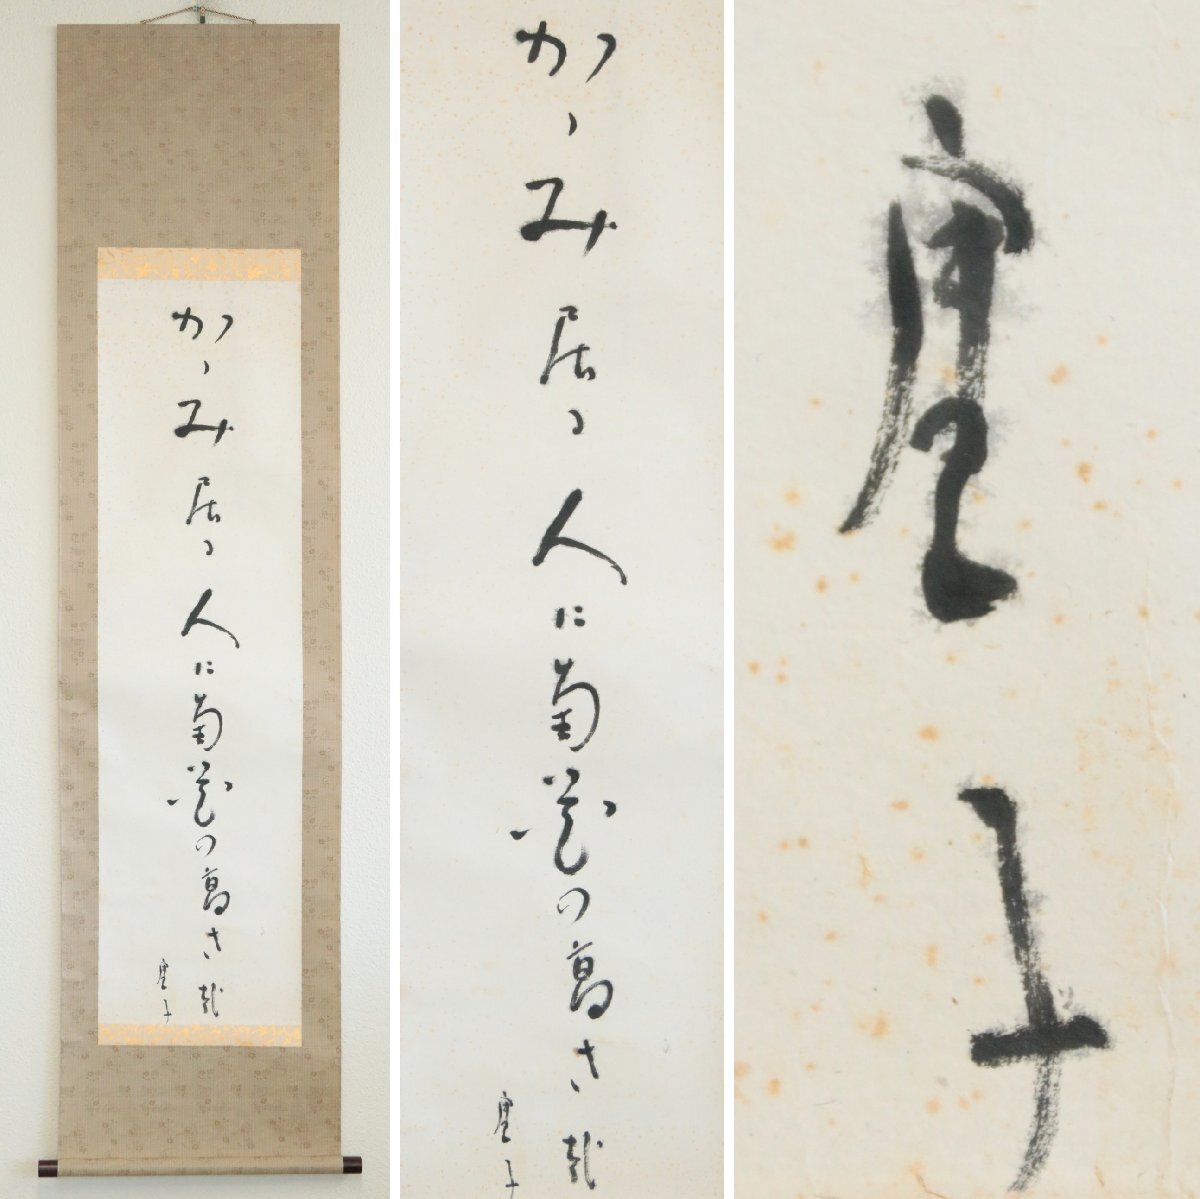 かゝみ居る人に菊花の高さ哉
虚子
かゝみ居る人に菊花の高さ哉
虚子
虚子